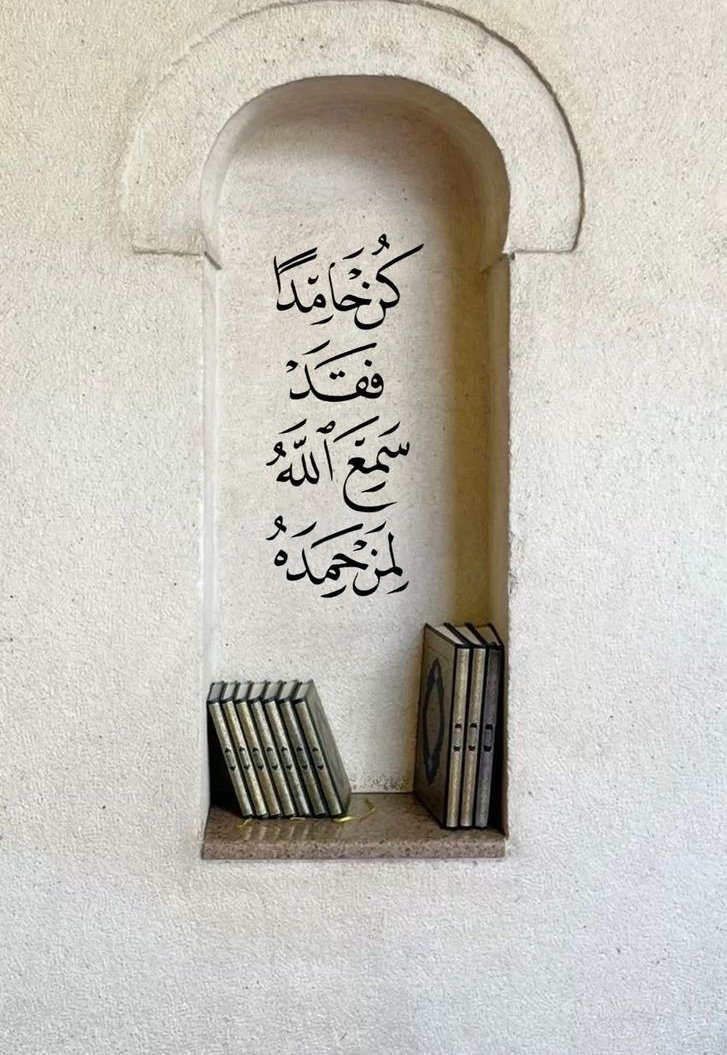 كُنْ حَامِدًا
فَقَدْ
سَمِعَ ٱللَّهُ
لِمَنْ حَمِدَهُ